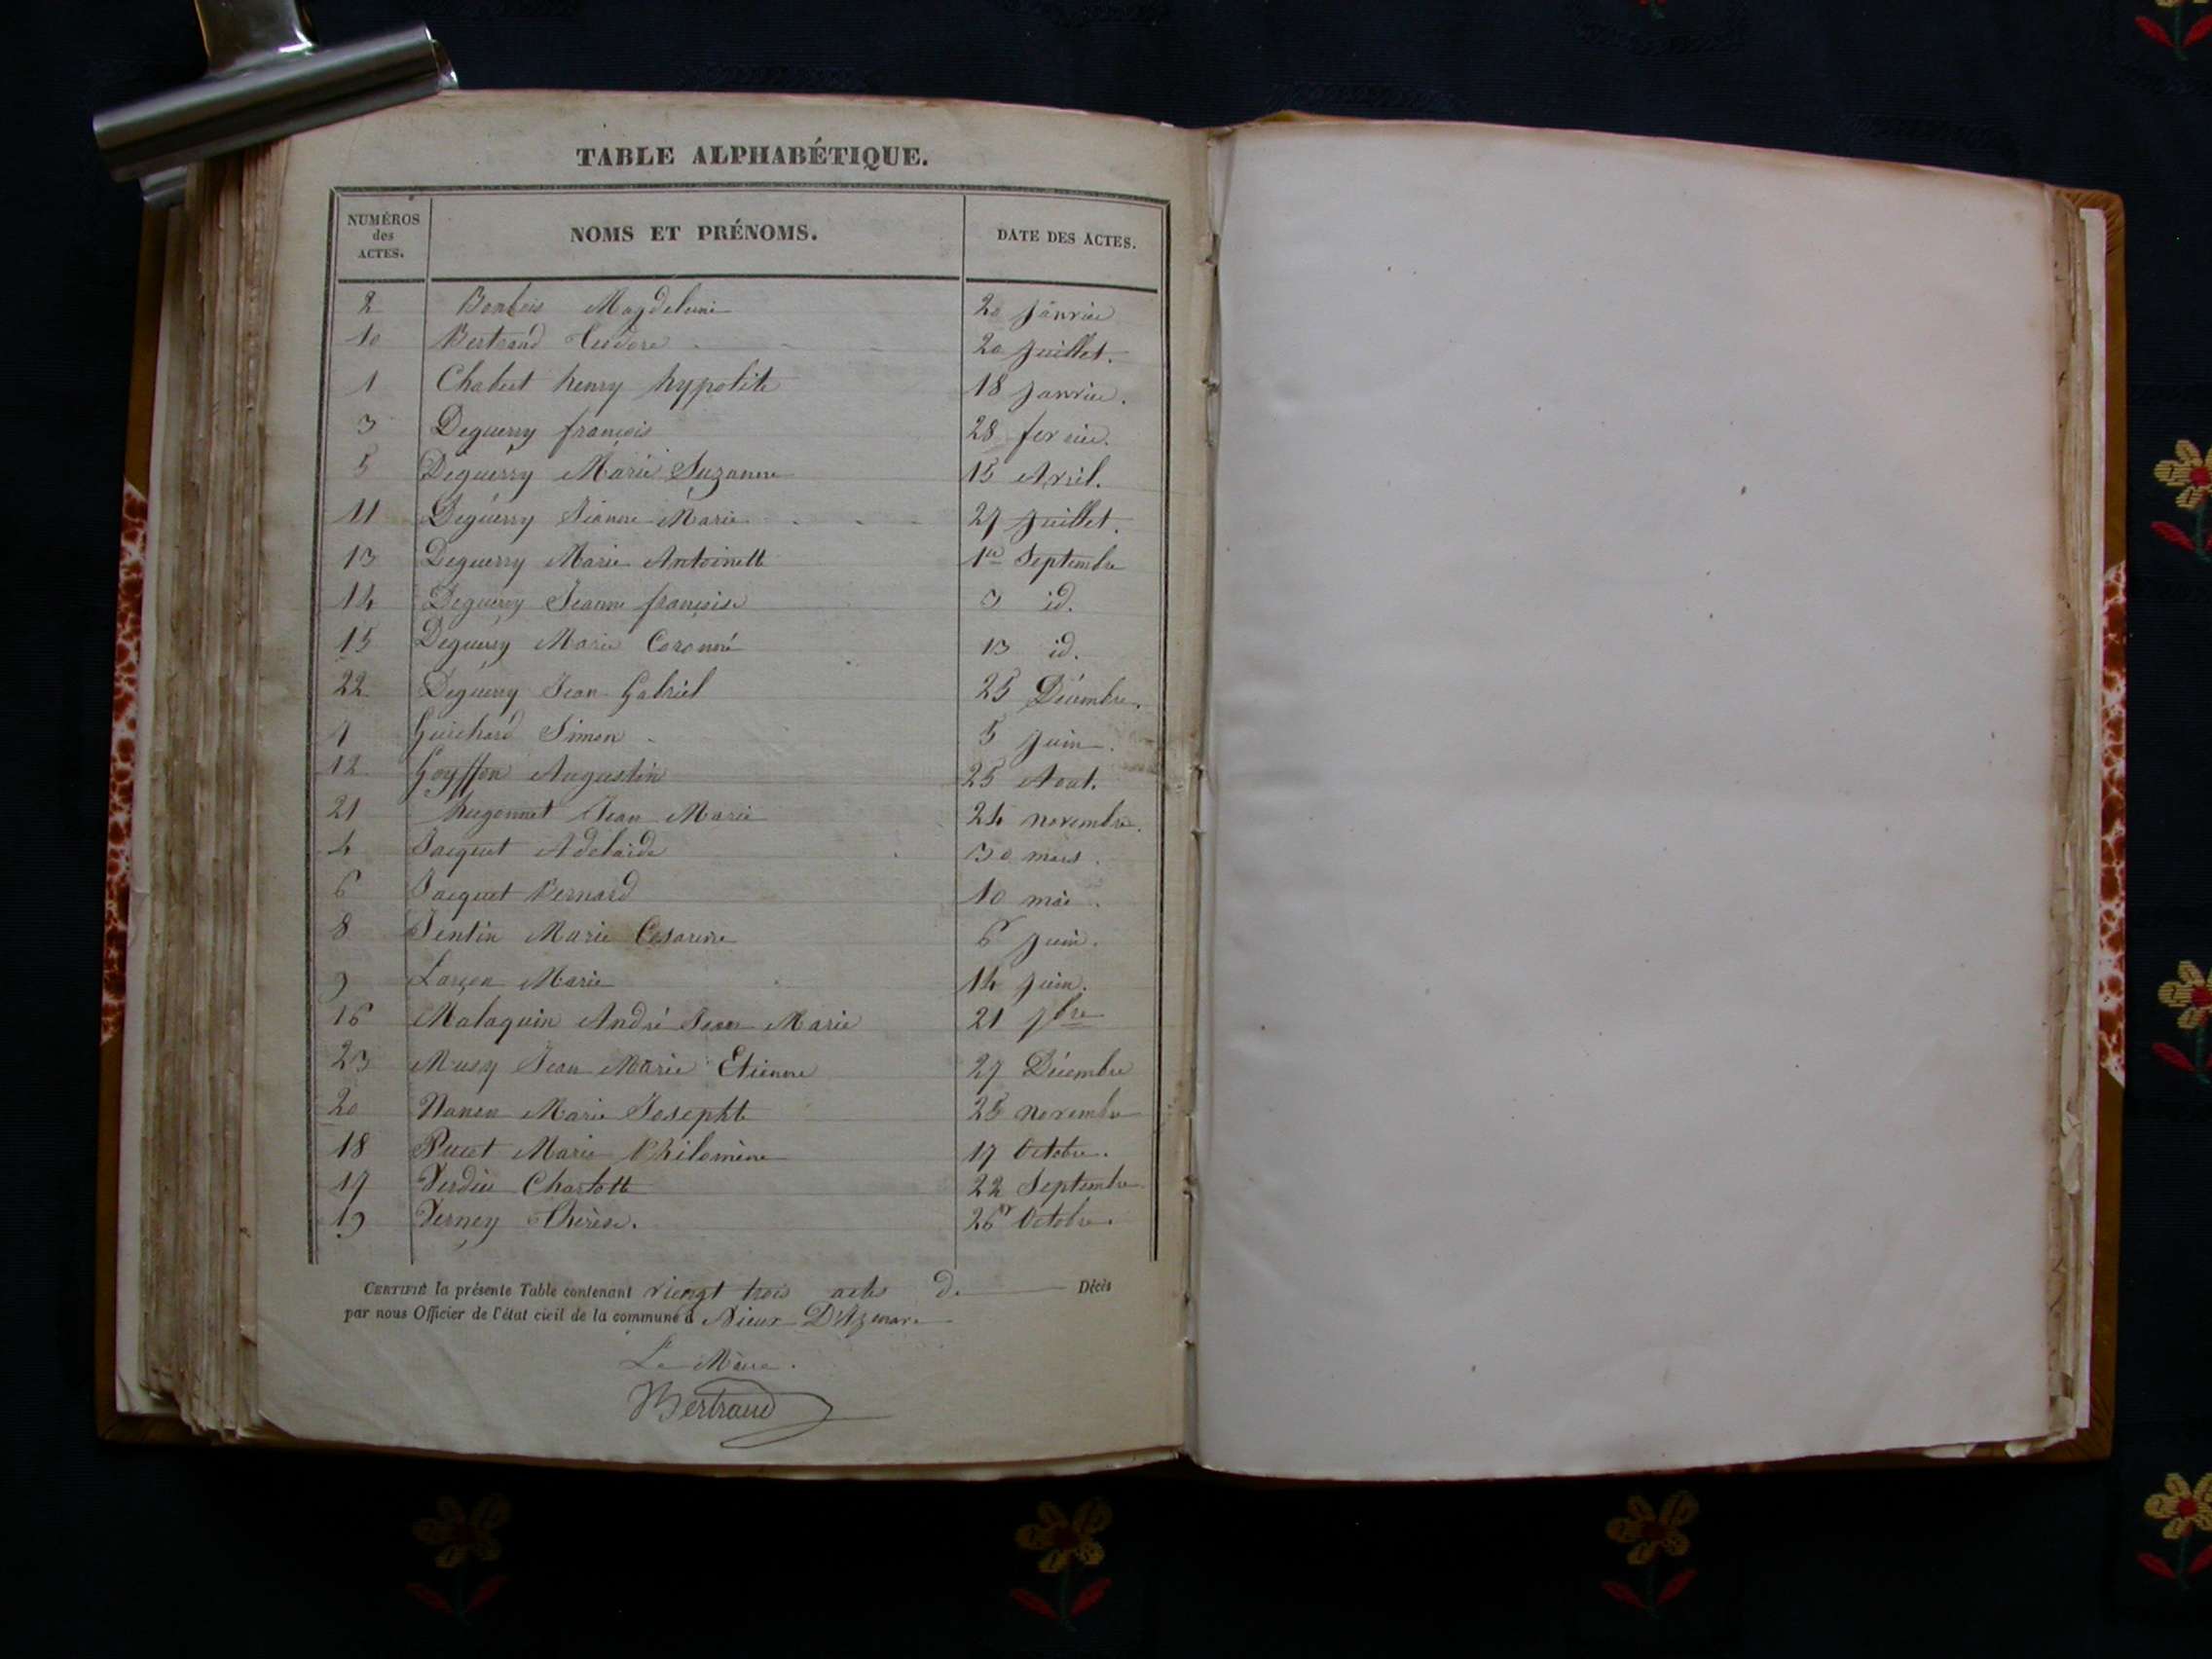 TABLE ALPHABÉTIQUE.
NUMÉROS des ACTES. NOMS ET PRÉNOMS. DATE DES ACTES.
2 Magdeleine 20 Janvier
10 Bertrand 20 Juillet.
1 Chabert henry hypolite 18 Janvier.
3 Deguerry françois 28 fevrier.
5 Deguerry Marie Suzanne 15 Avril.
11 Deguerry Jeanne Marie 27 Juillet.
13 Deguerry Marie Antoinette 1er Septembre
14 Deguerry Jeanne françoise 3 id.
15 Deguerry Marie 13 id.
22 Deguerry Jean Gabriel 25 Décembre.
7 Guichard Simon 5 Juin.
12 Goyffon Augustin 25 Aout.
21 hugonnet Jean Marie 24 novembre.
4 Jacquet Adelaide 30 mars.
6 Jacquet Bernard 10 mai.
8 Jentin Marie Cesarine 6 Juin.
9 Larçon Marie 14 Juin.
16 Malaquin André Jean Marie 21 7bre
23 Musy Jean Marie Etienne 27 Décembre
20 Marie Josephte 25 novembre
18 Pucet Marie Philomène 17 Octobre.
17 Verdin Charlotte 22 Septembre
19 Verney Thérèse. 26 Octobre.
CERTIFIÉ la présente Table contenant viengt trois actes de Décès
par nous Officier de l'état civil de la commune d
Le Maire.
Bertrand